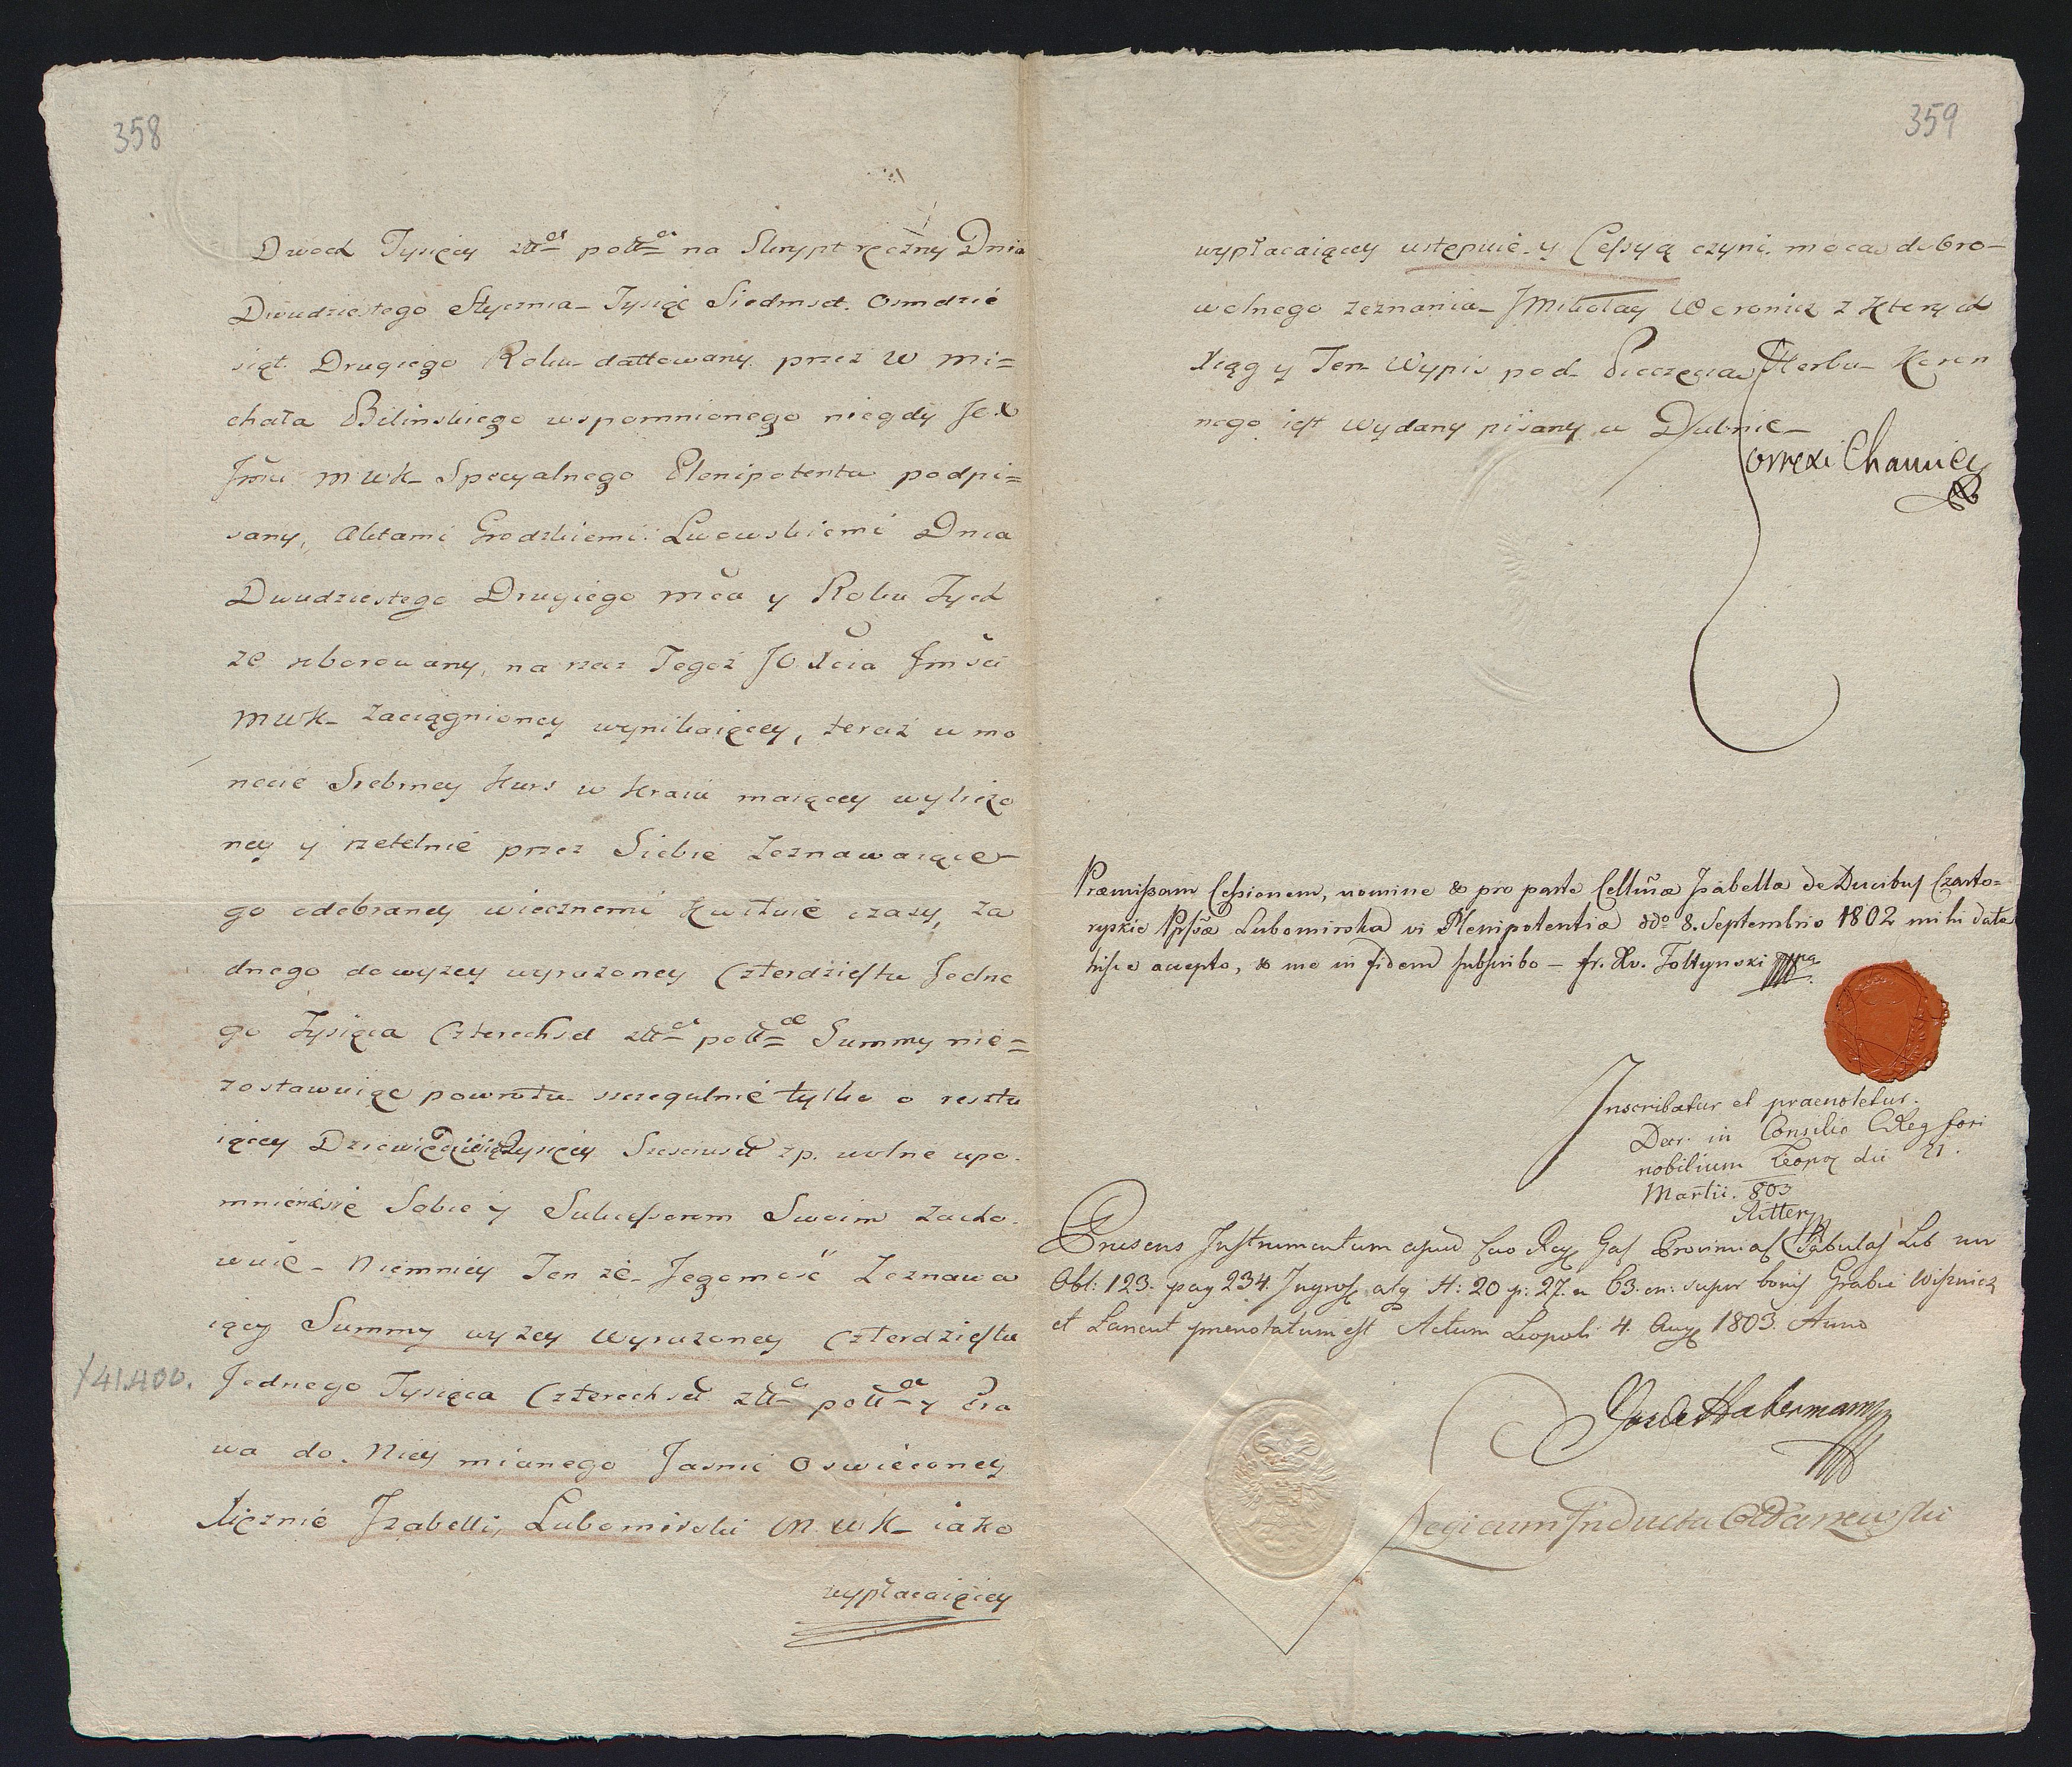 358
Dwoch Tysięcy złł polł na Skrypt ręczny Dnia
Dwudziestego Stycznia Tysiąc Siedmset Osmdzie
siąt Drugiego Roku dattowany przez W Mi=
chała Bilinskiego wspomnionego niegdy
Jmci MWK Specyalnego Plenipotenta podpi=
sany, Aktami Grodzkiemi Lwowskiemi Dnia
Dwudziestego Drugiego mca y Roku Tych
ze roborowany, na rzecz Tegoż JO Xcia Jmsci
MWK zaciągnioney wynikaiącey, teraz w mo
necie Srebrney Kurs w Kraiu maiącey wyliczo
ney y rzetelnie przez Siebie Zeznawaiące
go odebraney wiecznemi kwituie czasy, Ża
dnego do wyzey wyrazoney Czterdziestu Jedne
go Tysiąca Czterechset złł polł Summy nie=
zostawuiąc powrotu szczegulnie tylko o resztu
iącey Tysięcy Szesciuset zp. wolne upo
mnienie Sobie y Sukcessorom Swoim zacho
wuie Niemniey Ten że Jegomość Zeznawa
iący Summy wyzey wyrazoney Czterdziestu
/41.400. Jednego Tysiąca Czterechset złł polł y Pra
wa do Niey mianego Jasnie Oswieconey
Xiężnie Izabelli Lubomirski MWK iako
wypłacaiącey
359
wypłacaiącey ustępuie y Cessyą czyni mocą dobro=
wolnego zeznania Mikołay Woronicz z Ktorych
Xiąg y Ten Wypis pod Pieczęcią Herbu Koron
nego iest Wydany pisany w Dubnie
Correxi
Præmissam Cessionem, nomine & pro parte Cellmæ Isabellæ de Ducibus Czarto=
ryskie Lubomirska vi Plenipotentiæ ddo 8. Septembris 1802 mihi datæ
hisce accepto, & me in fidem subscribo — fr. Xv. Foltynski
Inscribatur et praenotetur.
Decr. in Consilio CReg fori
nobilium Leopo die 21.
Martii. 803
Ritter
Præsens Instrumentum apud Cæo Reg Gal Provincial Tabulas Lib
Obl: 123. pag 234. Ingross atq H: 20 p: 27. n 63. on: super bonis Grabie Wisznicz
et Lancut prænotatum est Actum Leopoli 4. Aug 1803. Anno
Habermann